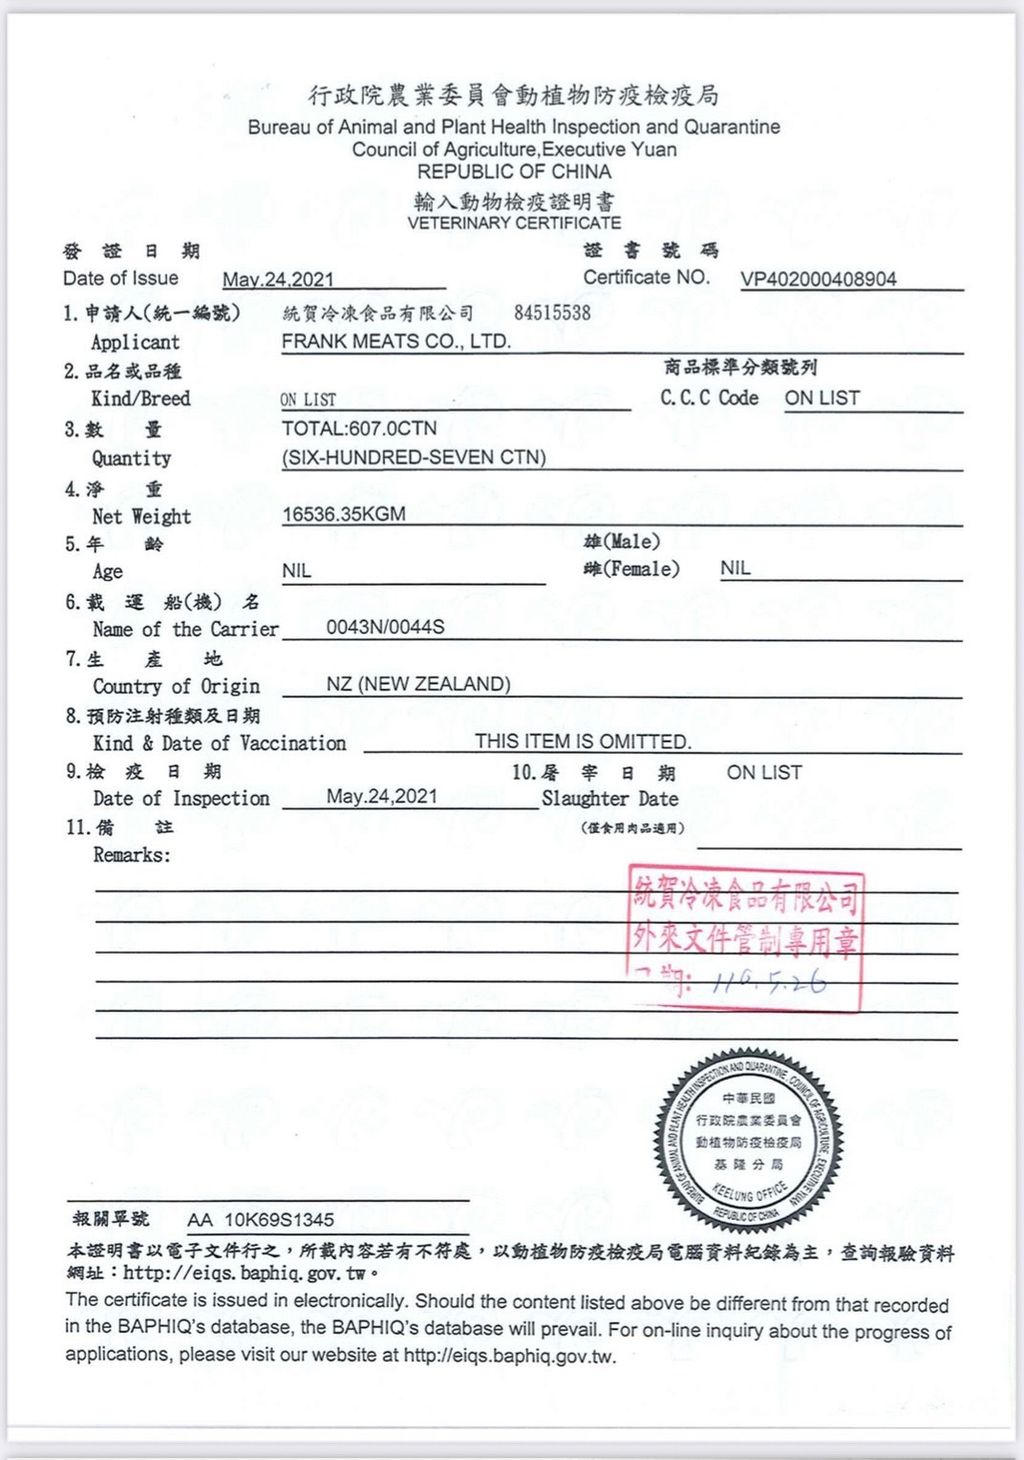 行政院農業委員會動植物防疫檢疫局
Bureau of Animal and Plant Health Inspection and Quarantine
Council of Agriculture,Executive Yuan
REPUBLIC OF CHINA
輸入動物檢疫證明書
VETERINARY CERTIFICATE
發 證 日 期 證 書 號 碼
Date of Issue May.24,2021 Certificate NO. VP402000408904
1.申請人(統一編號) 統賀冷凍食品有限公司 84515538
Applicant FRANK MEATS CO., LTD.
2.品名或品種 商品標準分類號列
Kind/Breed ON LIST C.C.C Code ON LIST
3.數 量 TOTAL:607.0CTN
Quantity (SIX-HUNDRED-SEVEN CTN)
4.淨 重
Net Weight 16536.35KGM
5.年 齡 雄(Male)
Age NIL 雌(Female) NIL
6.載 運 船(機) 名
Name of the Carrier 0043N/0044S
7.生 產 地
Country of Origin NZ (NEW ZEALAND)
8.預防注射種類及日期
Kind & Date of Vaccination THIS ITEM IS OMITTED.
9.檢 疫 日 期 10.屠 宰 日 期 ON LIST
Date of Inspection May.24,2021 Slaughter Date
11.備 註 (僅食用肉品適用)
Remarks:
統賀冷凍食品有限公司
外來文件管制專用章
日期: 110.5.26
BUREAU OF ANIMAL AND PLANT HEALTH INSPECTION AND QUARANTINE, COUNCIL OF AGRICULTURE, EXECUTIVE YUAN
中華民國
行政院農業委員會
動植物防疫檢疫局
基隆分局
KEELUNG OFFICE
REPUBLIC OF CHINA
報關單號 AA 10K69S1345
本證明書以電子文件行之，所載內容若有不符處，以動植物防疫檢疫局電腦資料紀錄為主，查詢報驗資料
網址：http://eiqs.baphiq.gov.tw。
The certificate is issued in electronically. Should the content listed above be different from that recorded
in the BAPHIQ's database, the BAPHIQ's database will prevail. For on-line inquiry about the progress of
applications, please visit our website at http://eiqs.baphiq.gov.tw.